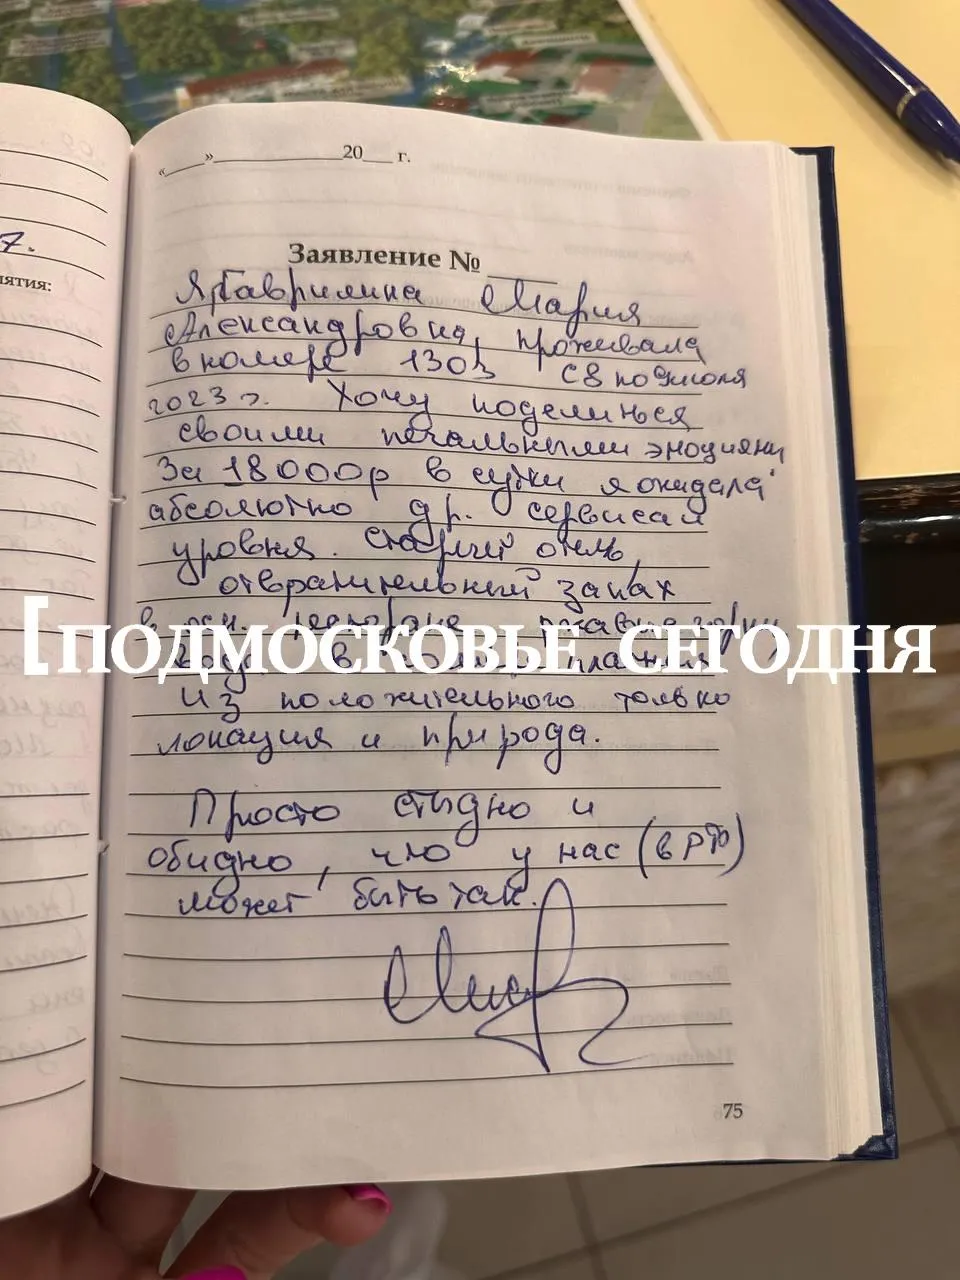 «____»__________20___ г.
7.
Заявление № ____
Я, Гаврилина Мария
Александровна, проживала
в номере 1303 с 8 по 9 июля
2023 г. Хочу поделиться
своими печальными эмоциями
За 18000р в сутки я ожидала
абсолютно др. сервиса и
уровня. Старый отель,
отвратительный запах
в осн. ресторане
[ПОДМОСКОВЬЕ СЕГОДНЯ
вода в
Из положительного только
локация и природа.
Просто стыдно и
обидно, что у нас (в РФ)
может быть так.
75